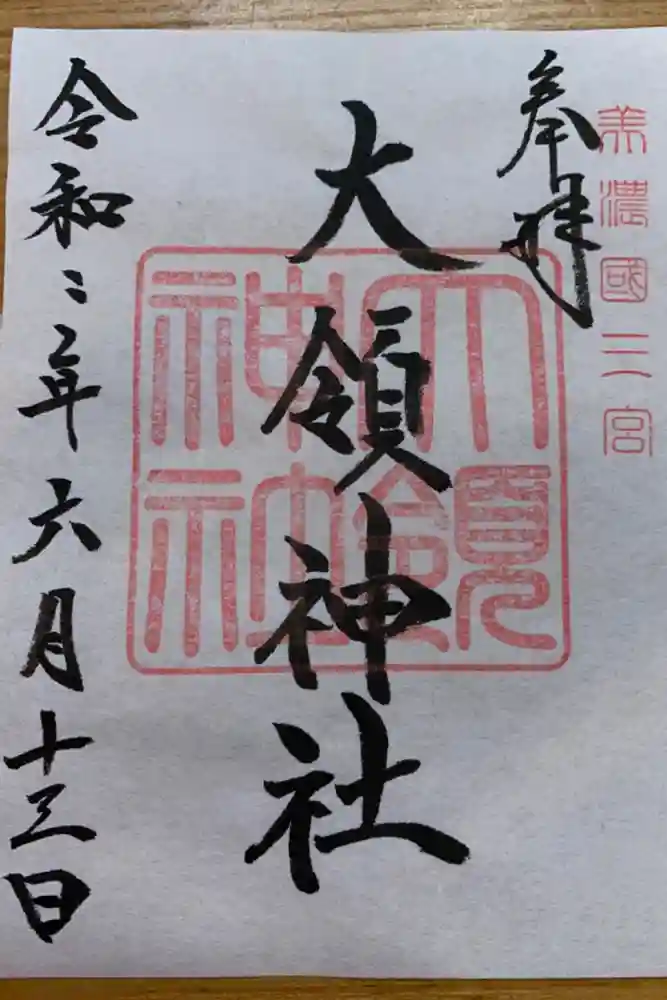 美濃國三宮
奉拝
大領神社
大領神社
令和二年六月十三日